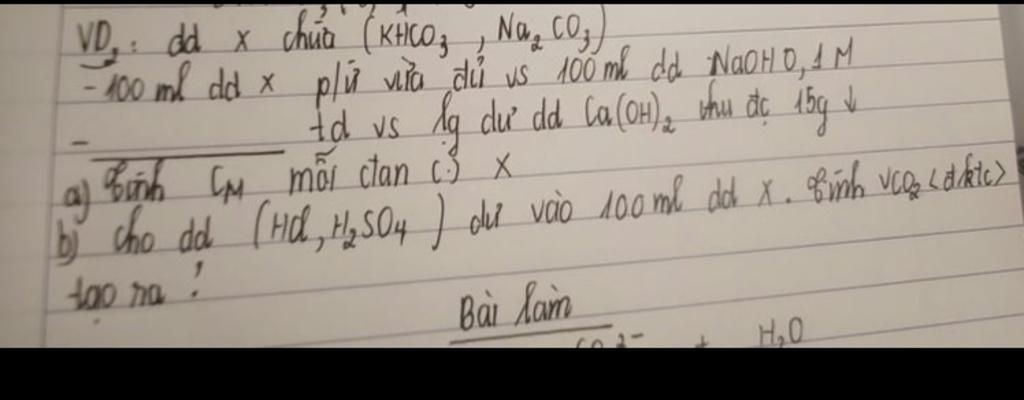 VD₂: dd x chứa (KHCO₃, Na₂CO₃)
- 100 ml dd x p/ứ vừa đủ vs 100 ml dd NaOH 0,1M
- ________ td vs lg dư dd Ca(OH)₂ thu đc 15g ↓
a) Tính CM mỗi ctan (:) X
b) cho dd (HCl, H₂SO₄) dư vào 100 ml dd x. Tính VCO₂ <đktc>
tạo ra?
Bài làm
H₂O